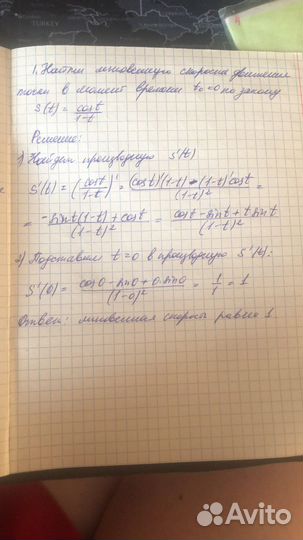 1. Найти мгновенную скорость движения
точки в момент времени t₀=0 по закону
S(t) = cost/(1-t)
Решение:
1) Найдем производную S'(t)
S'(t) = (cost/(1-t))' = ((cost)'(1-t) - (1-t)'cost)/(1-t)² =
= (-sint(1-t) + cost)/(1-t)² = (cost - sint + t sint)/(1-t)²
2) Подставим t=0 в производную S'(t):
S'(0) = (cos0 - sin0 + 0·sin0)/(1-0)² = 1/1 = 1
Ответ: мгновенная скорость равна 1
Avito